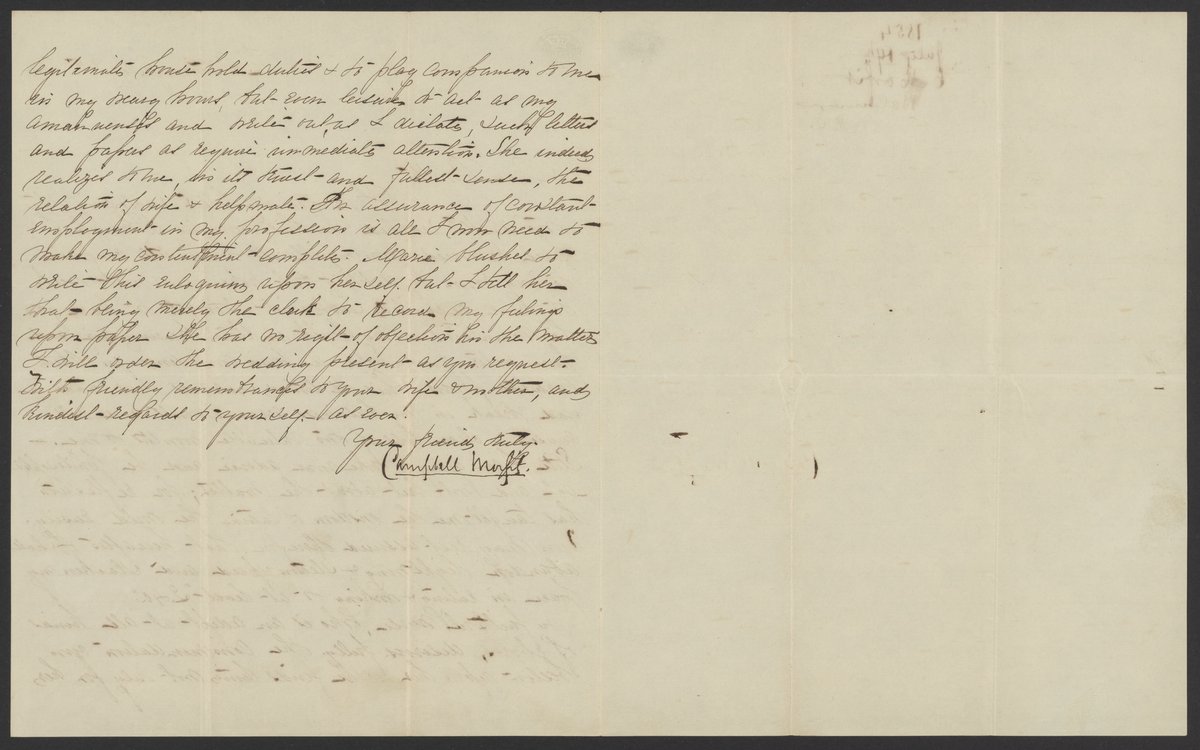 legitimate household duties & to play companion to me
in my weary hours, but even leisure to act as my
amanuensis and write out, as I dictate, such letters
and papers as require immediate attention. She indeed
realizes to me, in its truest and fullest sense, the
relation of wife & helpmate. The assurance of constant
employment in my profession is all I now need to
make my contentment complete. Marie blushes to
write this eulogium upon herself but I tell her
that being merely the clerk to record my feelings
upon paper she has no right of objection in the matter
I will order the wedding present as you request.
With friendly remembrances to your wife & mother, and
kindest regards to yourself as ever.
Your friend truly
Campbell Morfit.
1854
July 14